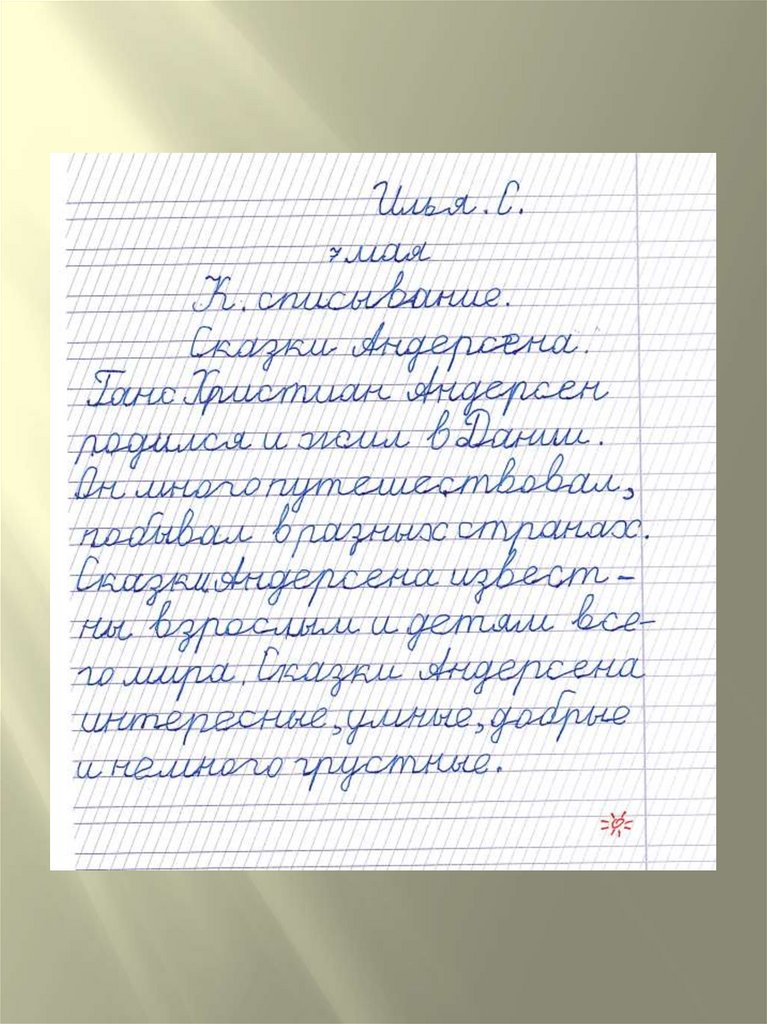 Илья. С.
7 мая
К. списывание.
Сказки Андерсена.
Ганс Христиан Андерсен
родился и жил в Дании.
Он много путешествовал,
побывал в разных странах.
Сказки Андерсена извест-
ны взрослым и детям все-
го мира. Сказки Андерсена
интересные, умные, добрые
и немного грустные.